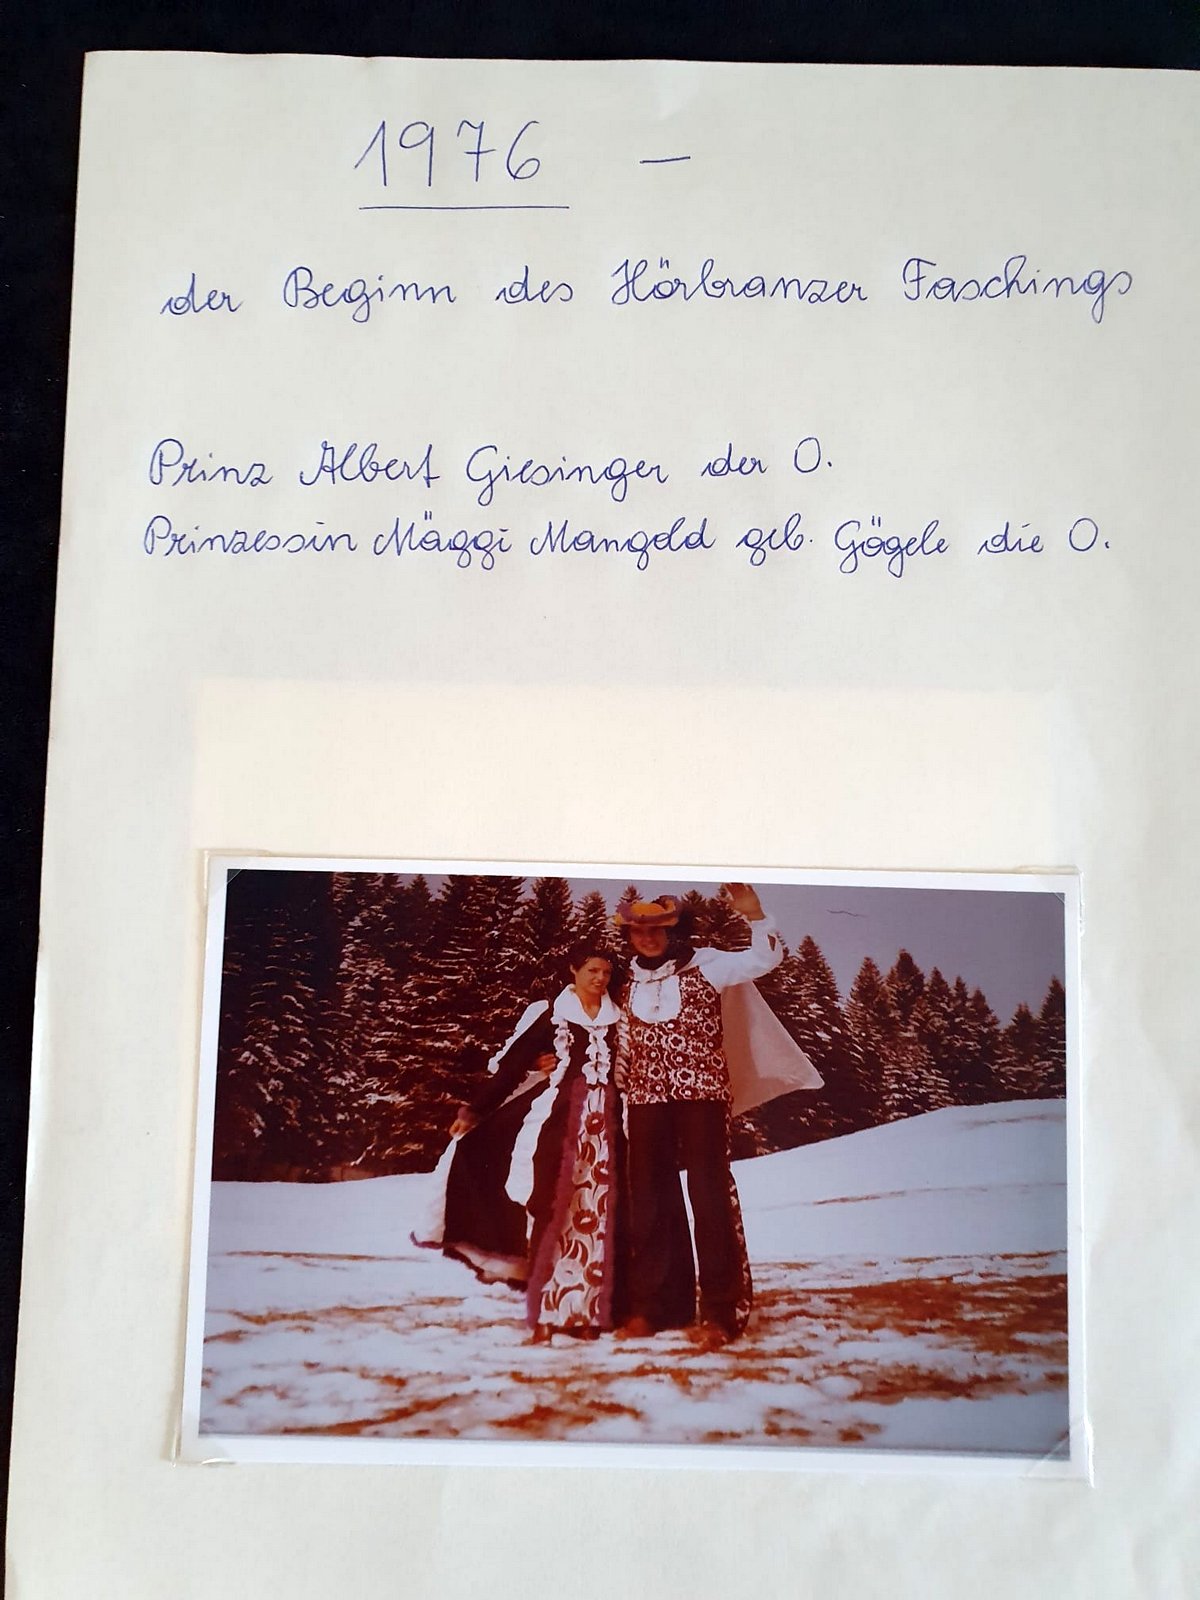 1976 —
der Beginn des Hörbranzer Faschings
Prinz Albert Giesinger der O.
Prinzessin Mäggi Mangold geb. Gögele die O.